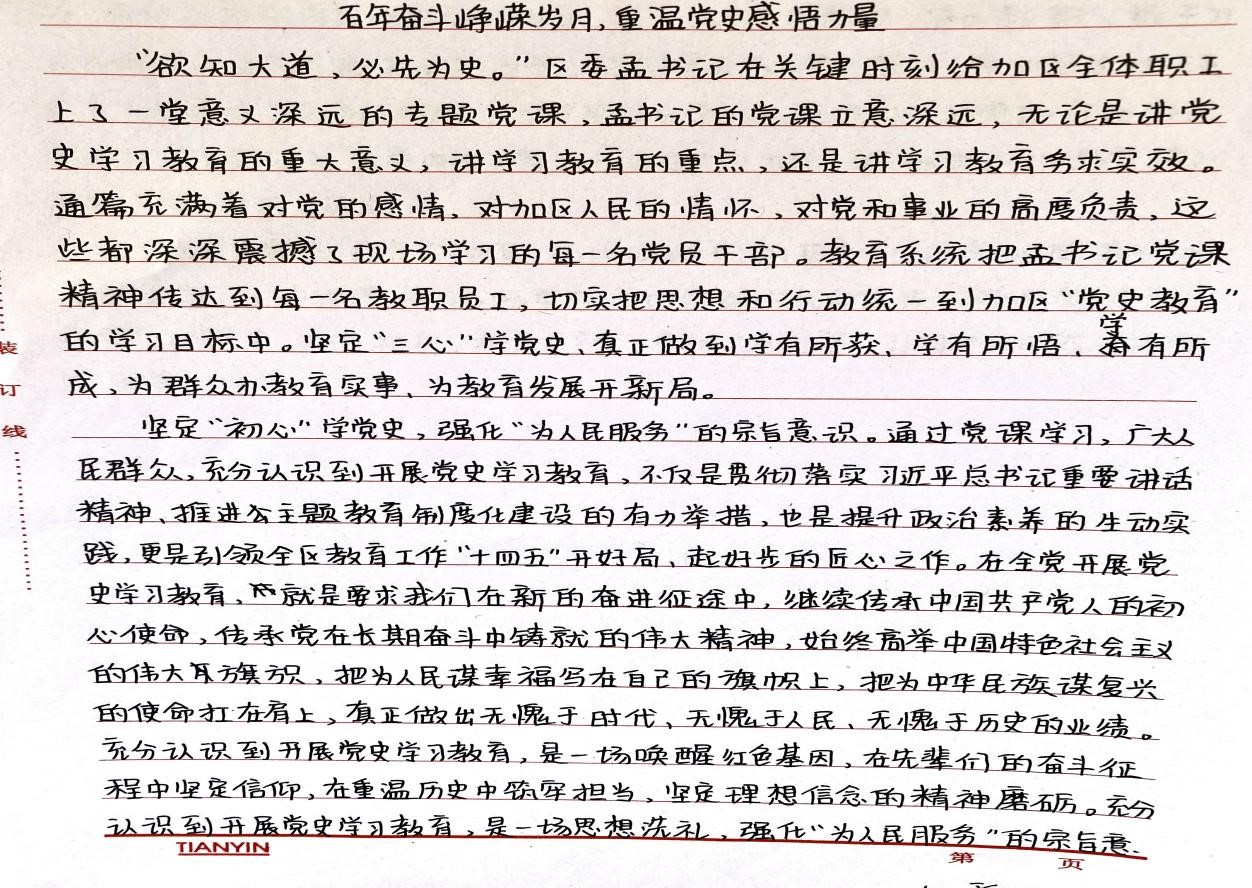 百年奋斗峥嵘岁月,重温党史感悟力量
“欲知大道,必先为史。”区委孟书记在关键时刻给加区全体职工
上了一堂意义深远的专题党课,孟书记的党课立意深远,无论是讲党
史学习教育的重大意义,讲学习教育的重点,还是讲学习教育务求实效。
通篇充满着对党的感情、对加区人民的情怀、对党和事业的高度负责,这
些都深深震撼了现场学习的每一名党员干部。教育系统把孟书记党课
精神传达到每一名教职员工,切实把思想和行动统一到加区“党史教育”
学
的学习目标中。坚定“三心”学党史、真正做到学有所获、学有所悟、有所
成、为群众办教育实事、为教育发展开新局。
坚定“初心”学党史,强化“为人民服务”的宗旨意识。通过党课学习,广大人
民群众,充分认识到开展党史学习教育,不仅是贯彻落实习近平总书记重要讲话
精神、推进主题教育制度化建设的有力举措,也是提升政治素养的生动实
践,更是引领全区教育工作“十四五”开好局、起好步的匠心之作。在全党开展党
史学习教育,就是要求我们在新的奋进征途中,继续传承中国共产党人的初
心使命,传承党在长期奋斗中铸就的伟大精神,始终高举中国特色社会主义
的伟大旗识,把为人民谋幸福写在自己的旗帜上,把为中华民族谋复兴
的使命扛在肩上,真正做出无愧于时代、无愧于人民、无愧于历史的业绩。
充分认识到开展党史学习教育,是一场唤醒红色基因,在先辈们的奋斗征
程中坚定信仰,在重温历史中筑牢担当,坚定理想信念的精神磨砺。充分
认识到开展党史学习教育,是一场思想洗礼,强化“为人民服务”的宗旨意.
TIANYIN
第 页
装
订
线